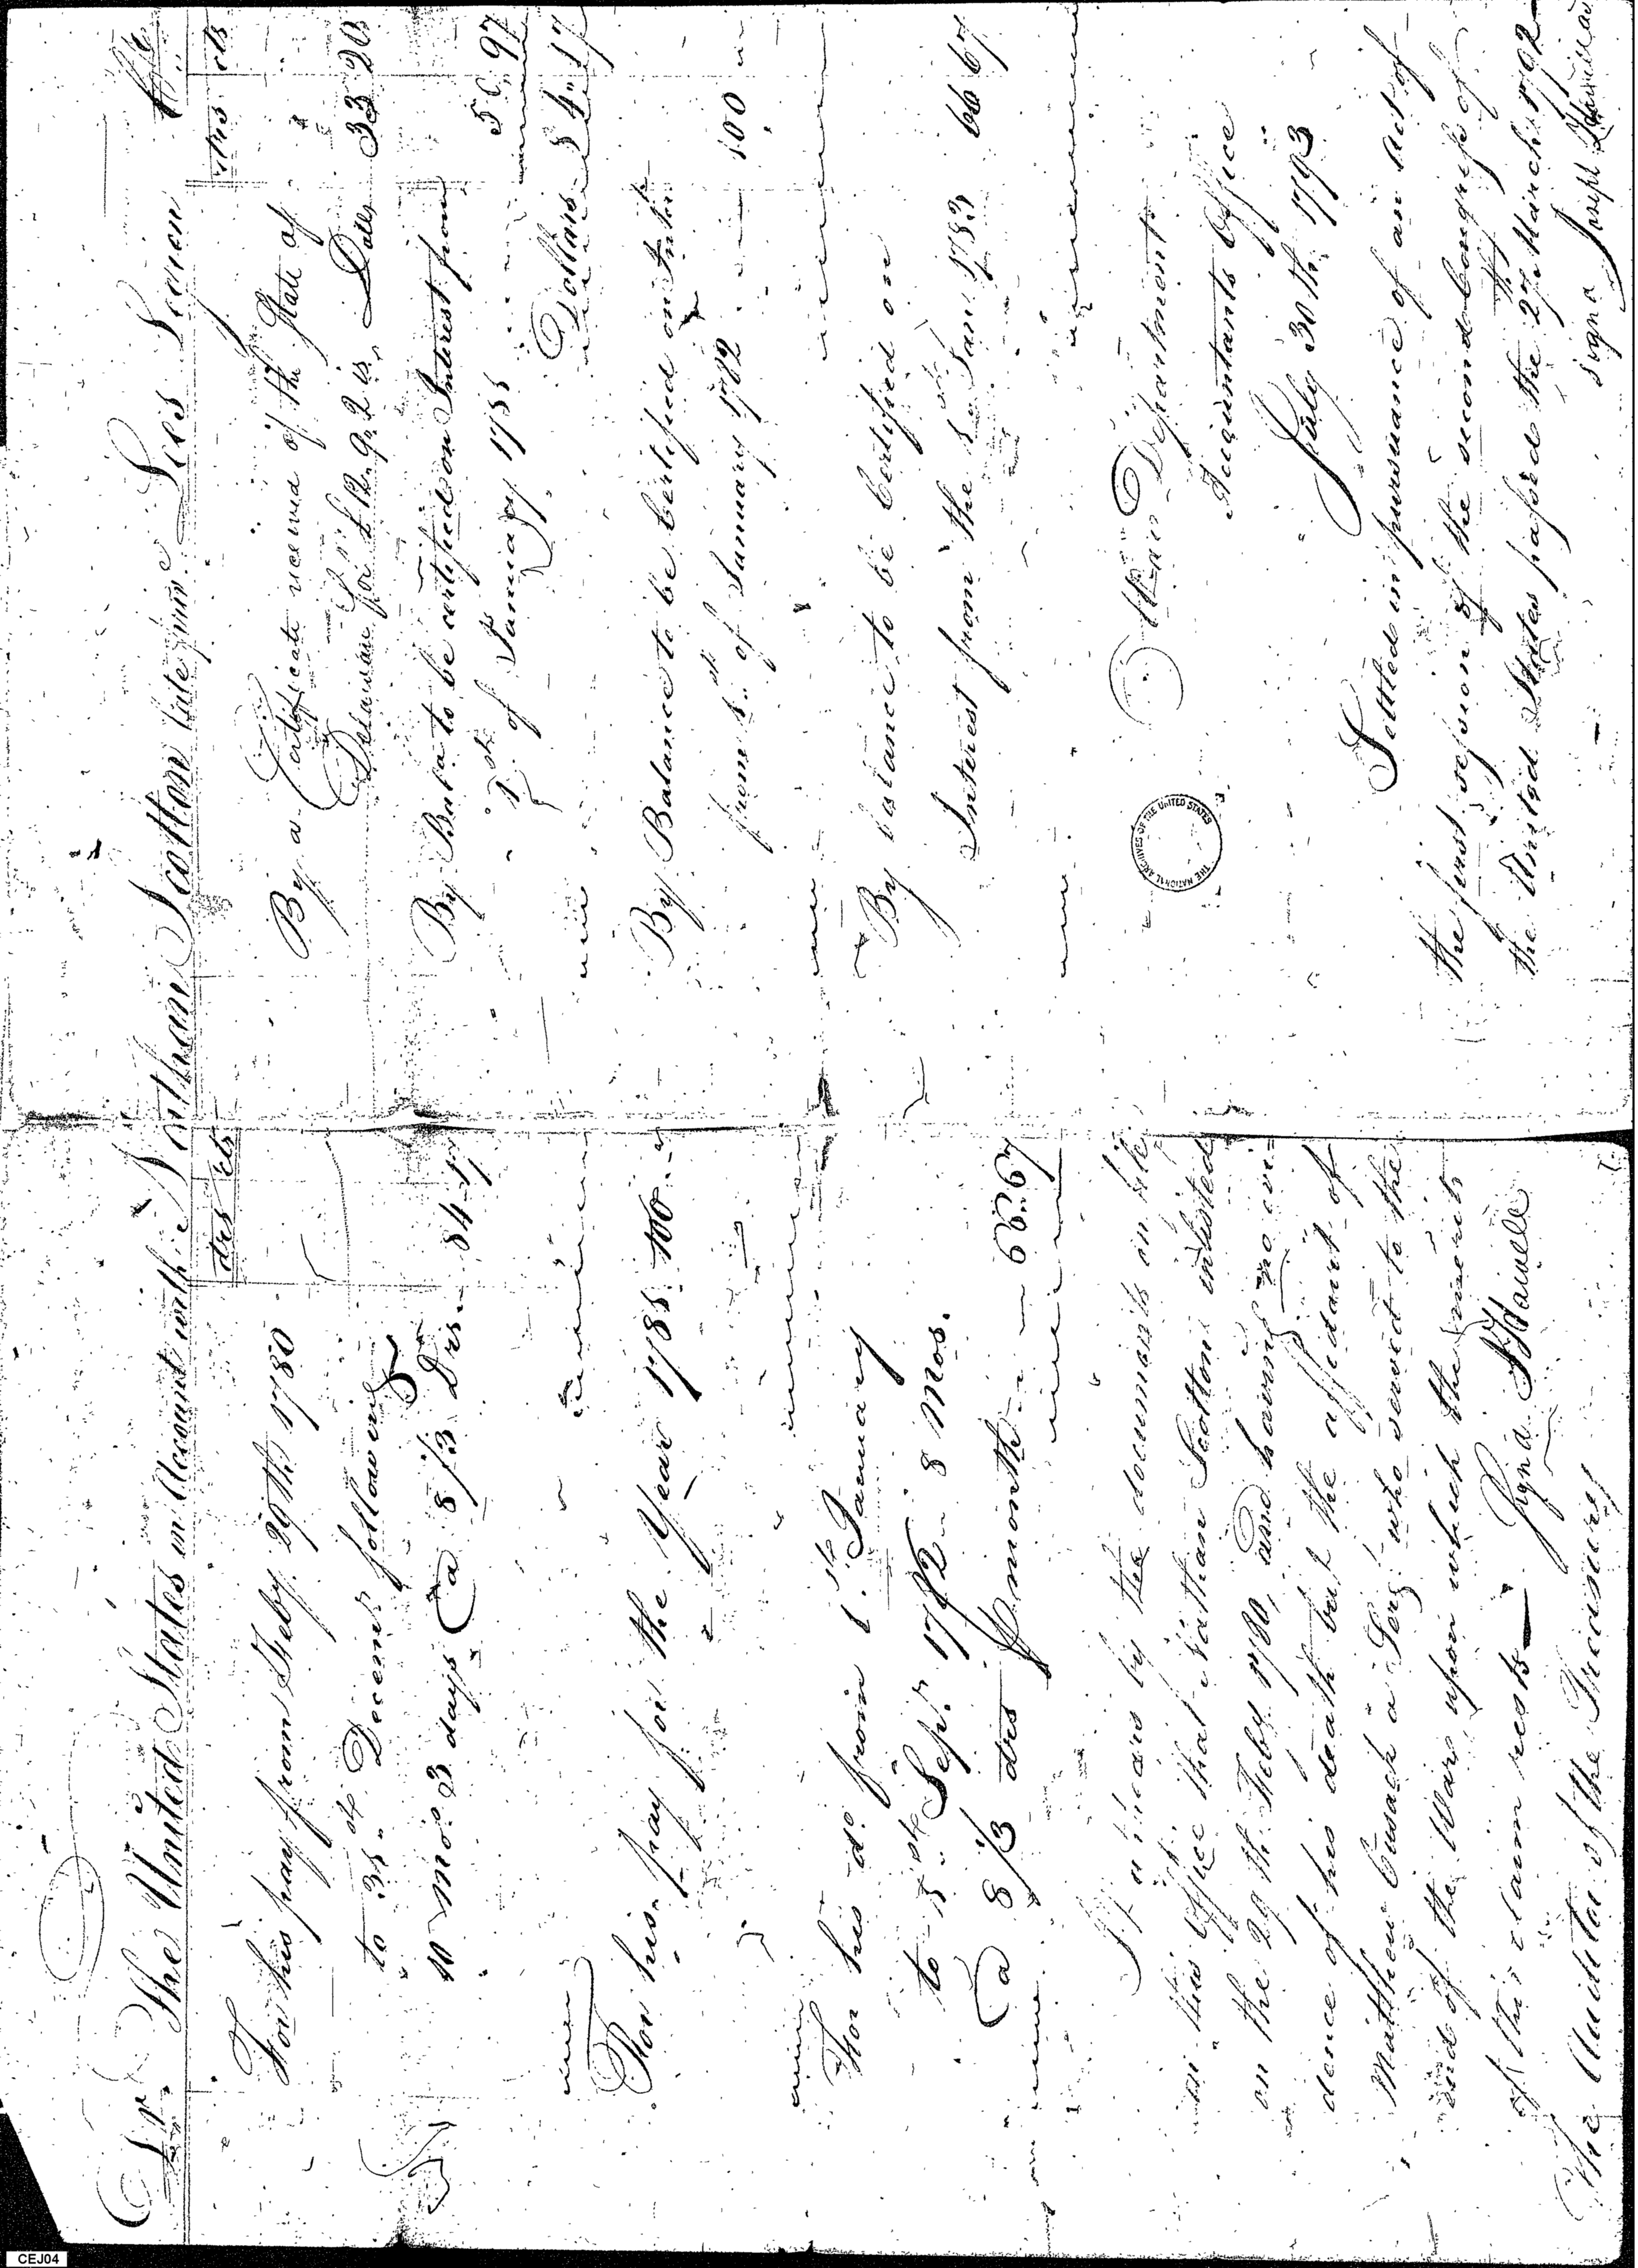 Dr. The United States in Account with Nathan Scotton late priv. Lees Legion Cr
drs cts
For his pay from Feby 29th 1780
to 31st Decemr following
10 mos 3 days @ 8 1/3 Drs 84.17
For his pay for the Year 1781 100
For his do from 1st January
to 1st Sepr. 1782 8 Mos.
@ 8 1/3 drs P month 66.67
It appears by the documents in file
in this Office that Nathan Scotton inlisted
on the 29th Feby 1780, and having no evi=
dence of his death but the affidavit of
Matthew Cusack a Sergt who served to the
end of the War, upon which the merits
of this claim rests
Signd J Howell
The Auditor of the Treasury
drs cts
By a Certificate received of the State of
Delaware for £12.9.2 is Dolls 33 20
By Bala to be certified on Interest from
1st of January 1781 50.97
Dollars 84.17
By Balance to be Certified on Intst
from 1st of January 1782 100
By balance to be Certified on
Interest from the 1st Jany 1783 66 67
War Department
Accountants Office
July 30th 1793
Settled in pursuance of an Act of
the first session of the second Congress of
the United States passed the 27th March 1792
signd Joseph Howell
THE NATIONAL ARCHIVES OF THE UNITED STATES
CEJ04